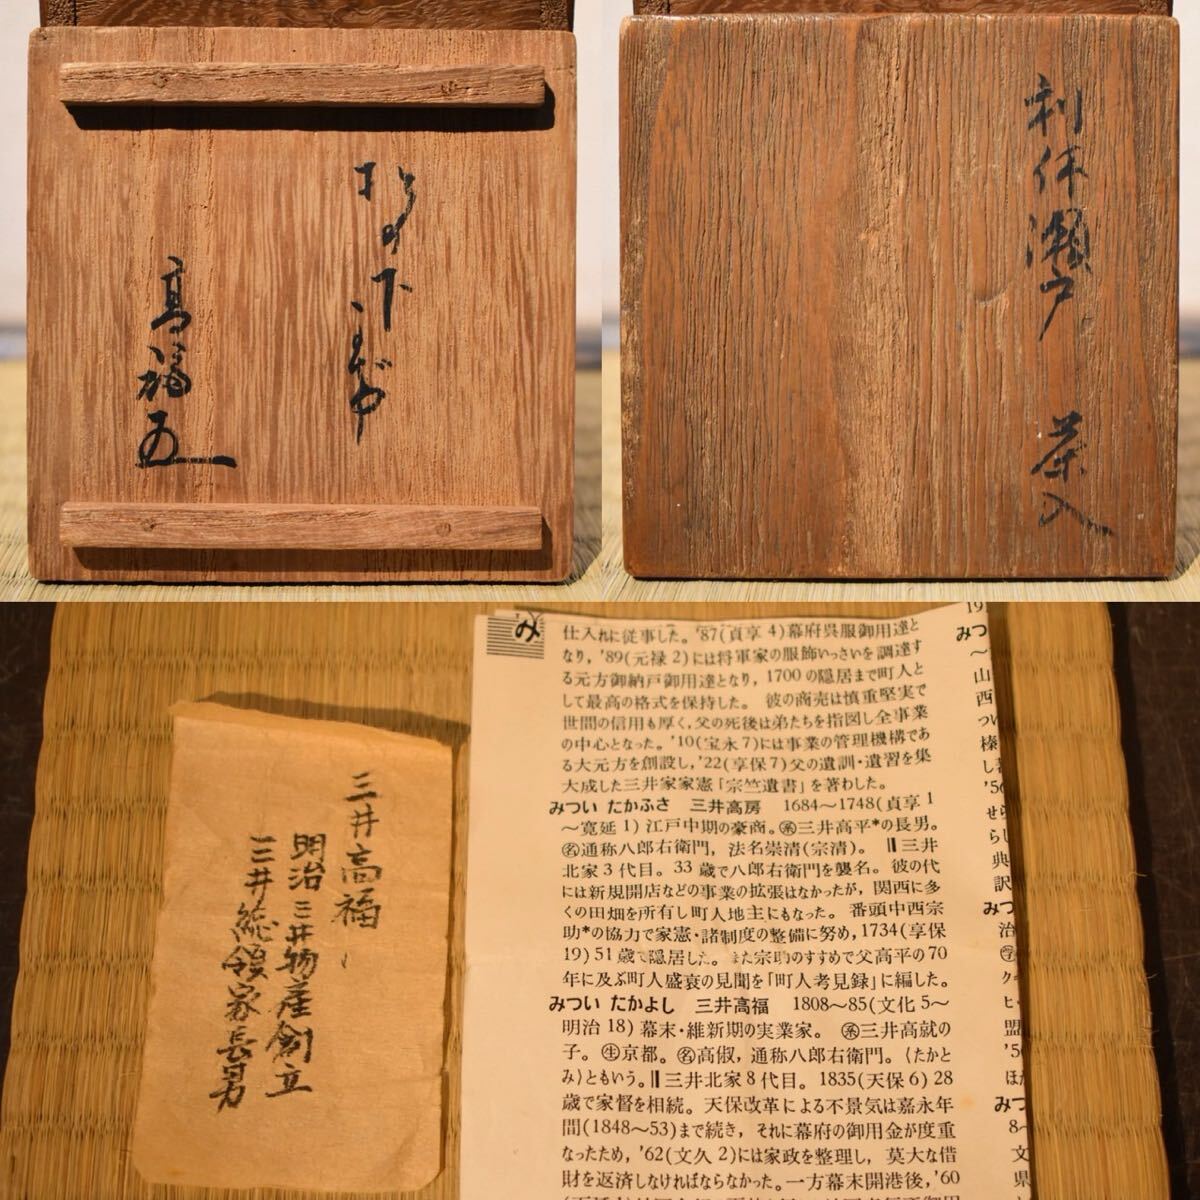 高福
利休瀬戸 茶入
三井高福
明治三井物産創立
三井総領家長男
み
仕入れに従事した。'87(貞享4)幕府呉服御用達と
なり，'89(元禄2)には将軍家の服飾いっさいを調達す
る元方御納戸御用達となり，1700の隠居まで町人と
して最高の格式を保持した。 彼の商売は慎重堅実で
世間の信用も厚く，父の死後は弟たちを指図し全事業
の中心となった。'10(宝永7)には事業の管理機構であ
る大元方を創設し，'22(享保7)父の遺訓・遺習を集
大成した三井家家憲「宗竺遺書」を著わした。
みつい たかふさ 三井高房 1684〜1748(貞享1
〜寛延1) 江戸中期の豪商。㊝三井高平*の長男。
㊔通称八郎右衛門，法名崇清(宗清)。 ‖三井
北家3代目。33歳で八郎右衛門を襲名。彼の代
には新規開店などの事業の拡張はなかったが，関西に多
くの田畑を所有し町人地主にもなった。 番頭中西宗
助*の協力で家憲・諸制度の整備に努め，1734(享保
19)51歳で隠居した。また宗助のすすめで父高平の70
年に及ぶ町人盛衰の見聞を「町人考見録」に編した。
みつい たかよし 三井高福 1808〜85(文化5〜
明治18) 幕末・維新期の実業家。 三井高就の
子。 京都。 高俶，通称八郎右衛門。(たかと
み)ともいう。‖三井北家8代目。1835(天保6)28
歳で家督を相続。天保改革による不景気は嘉永年
間(1848〜53)まで続き，それに幕府の御用金が度重
なったため，'62(文久2)には家政を整理し，莫大な借
財を返済しなければならなかった。一方幕末開港後，'60
19
みつ
〜
山
西
つい
榛
し
'50
せら
らし
典
訳
みつ
治
クキ
ヒ・
盟
'5
ほか
みつ
8〜
文
県